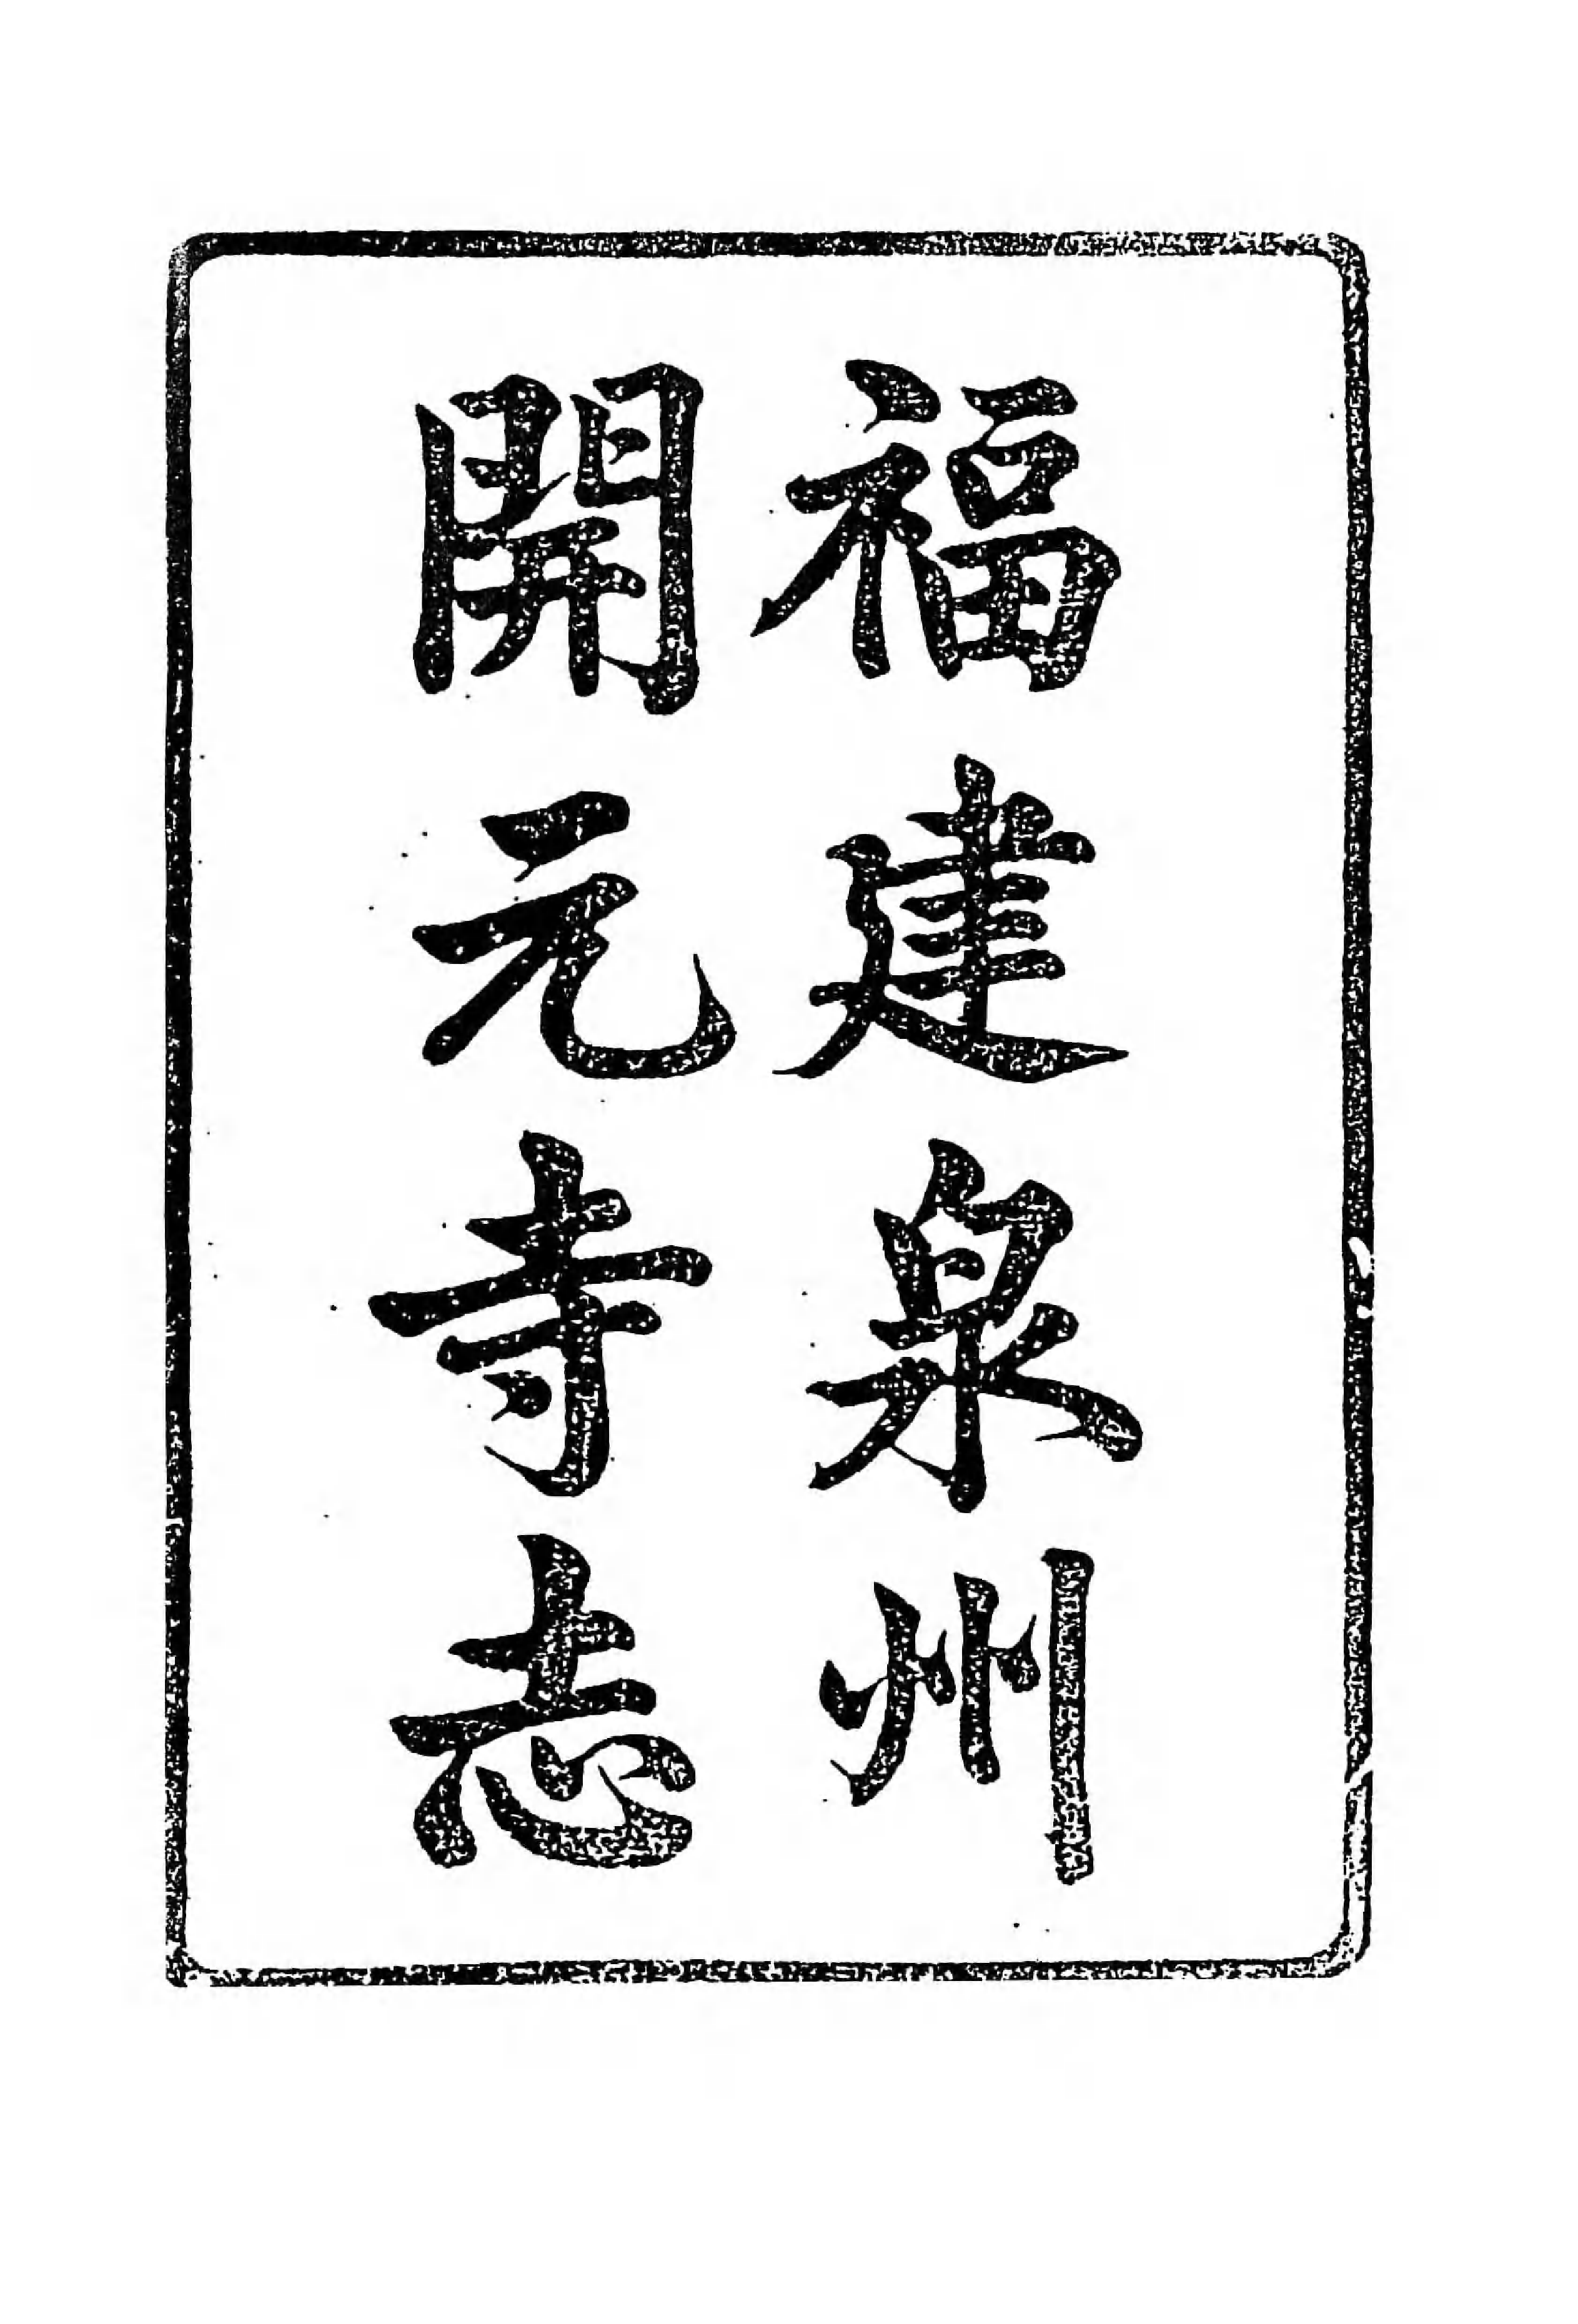 福建泉州
開元寺志